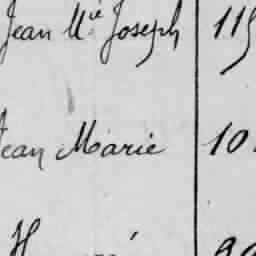 Jean Mie Joseph 115
Jean Marie 10